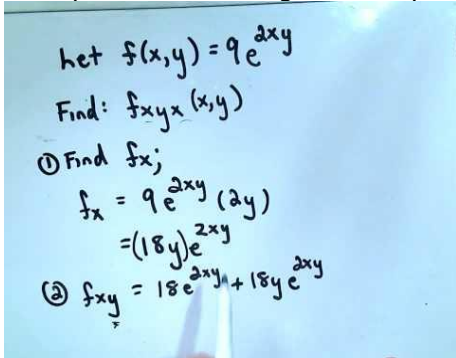 Let f(x,y) = 9e^{2xy}
Find: f_{xyx}(x,y)
① Find f_x;
f_x = 9e^{2xy}(2y)
=(18y)e^{2xy}
② f_{xy} = 18e^{2xy} + 18ye^{2xy}